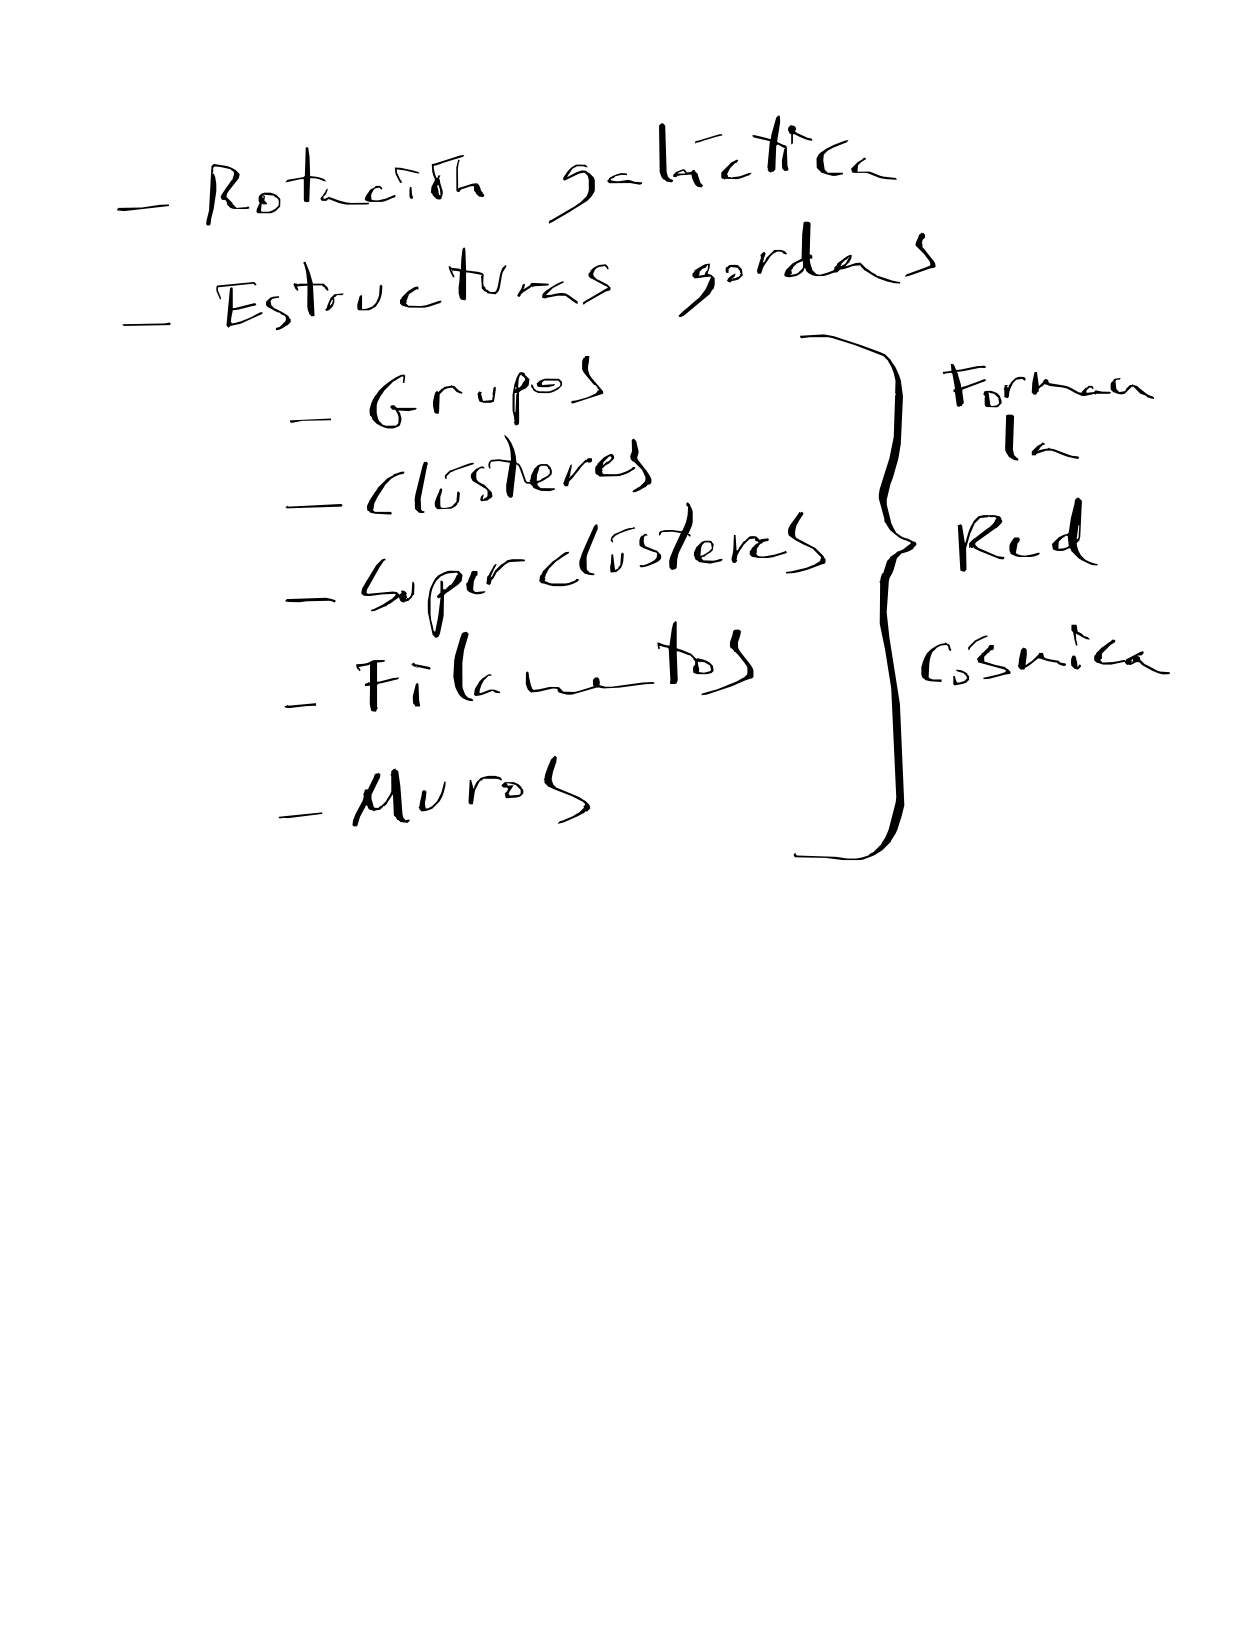 - Rotación galáctica
- Estructuras gordas
- Grupos
- Clústeres
- Superclústeres
- Filamentos
- Muros
Forman
la
Red
Cósmica